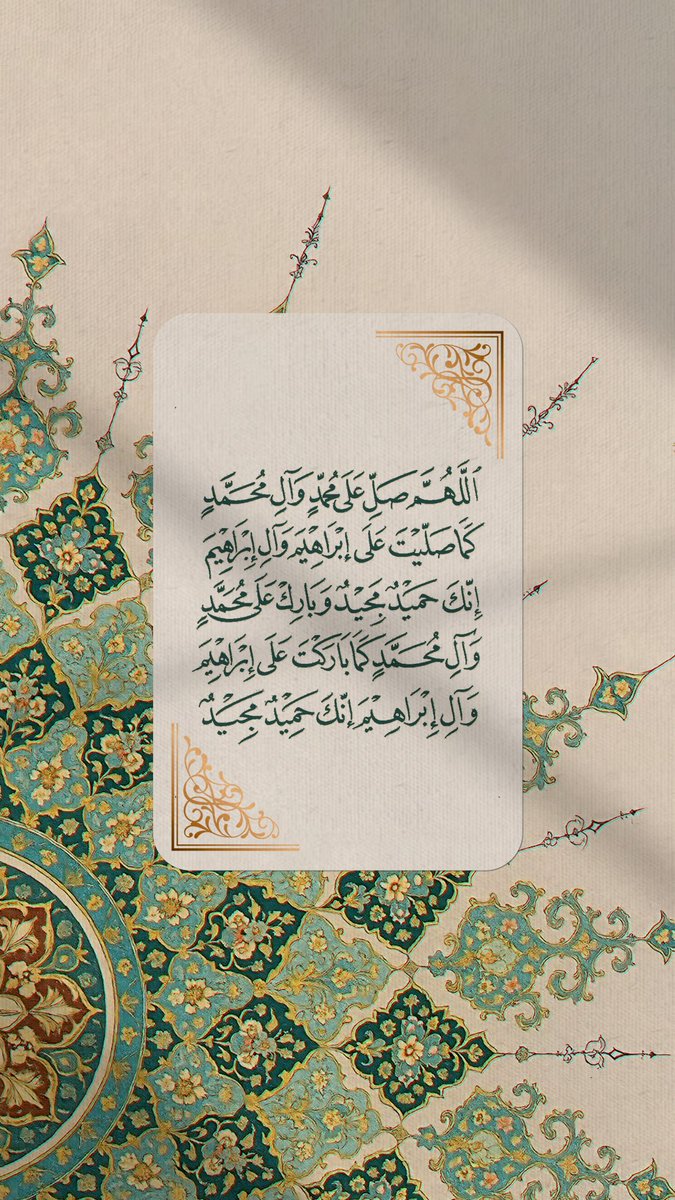 ٱللَّهُمَّ صَلِّ عَلَى مُحَمَّدٍ وَآلِ مُحَمَّدٍ
كَمَا صَلَّيْتَ عَلَى إِبْرَاهِيْمَ وَآلِ إِبْرَاهِيْمَ
إِنَّكَ حَمِيْدٌ مَجِيْدٌ وَبَارِكْ عَلَى مُحَمَّدٍ
وَآلِ مُحَمَّدٍ كَمَا بَارَكْتَ عَلَى إِبْرَاهِيْمَ
وَآلِ إِبْرَاهِيْمَ إِنَّكَ حَمِيْدٌ مَجِيْدٌ